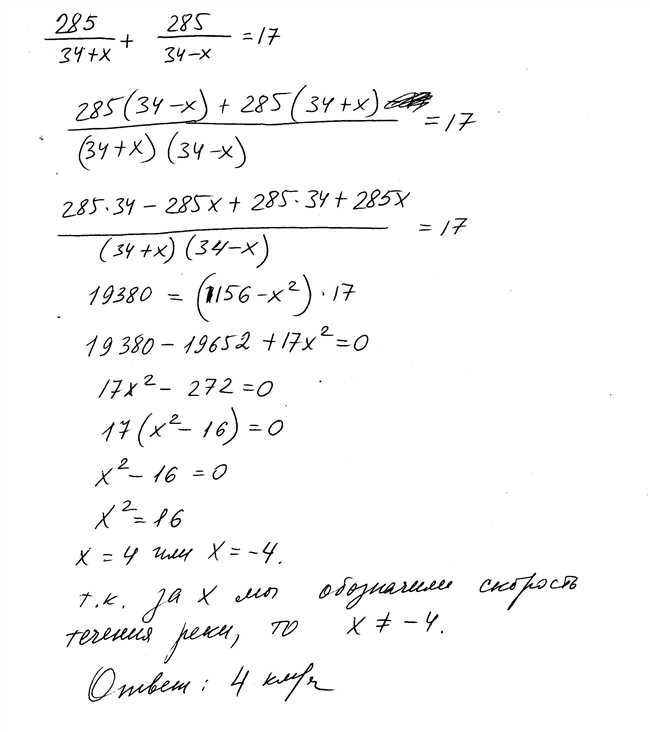 285/(34+x) + 285/(34-x) = 17
(285(34-x) + 285(34+x))/((34+x)(34-x)) = 17
(285·34 - 285x + 285·34 + 285x)/((34+x)(34-x)) = 17
19380 = (1156 - x²)·17
19380 - 19652 + 17x² = 0
17x² - 272 = 0
17(x² - 16) = 0
x² - 16 = 0
x² = 16
x = 4 или x = -4.
т.к. за x мы обозначили скорость
течения реки, то x ≠ -4.
Ответ: 4 км/ч